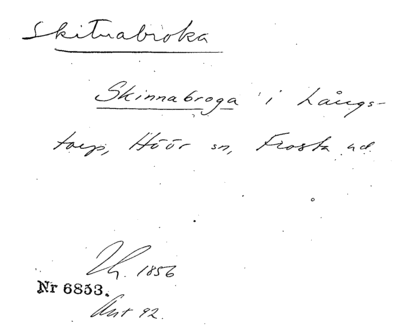 Skitnabroka
Skinnabroga i Långs-
torp, Höör sn, Frosta hd.
Th. 1856
Nr 6853.
Ant 92.